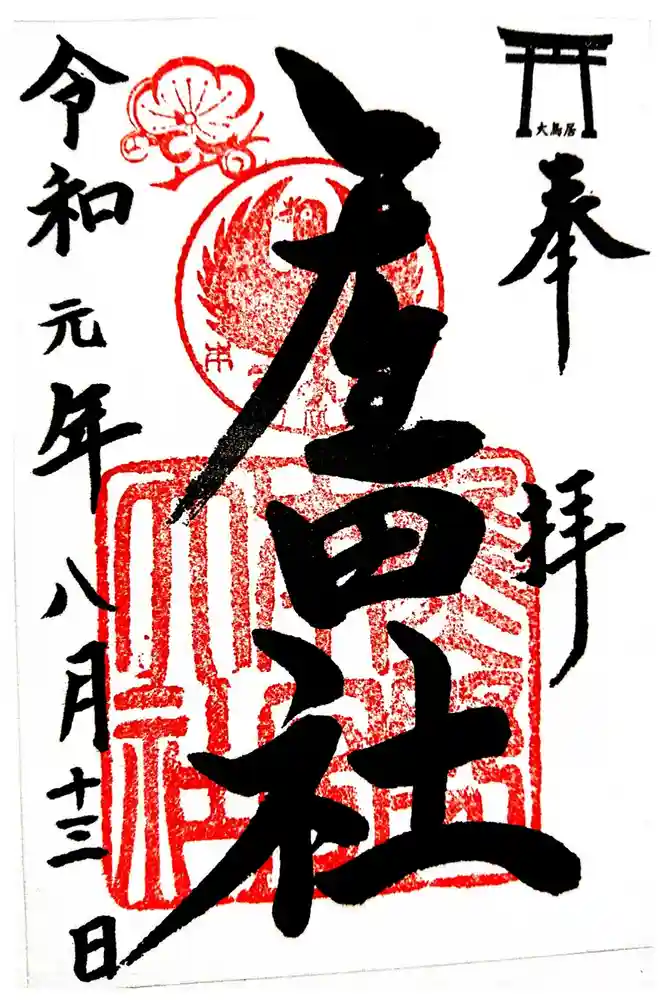 大鳥居
奉拝
産田社
令和元年八月十三日